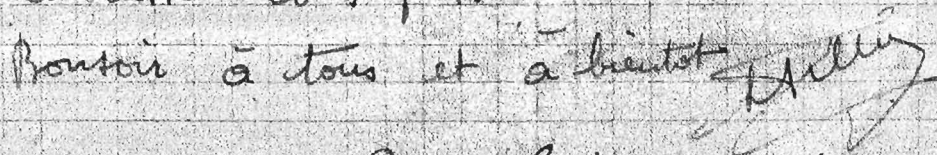 Bonsoir à tous et à bientot